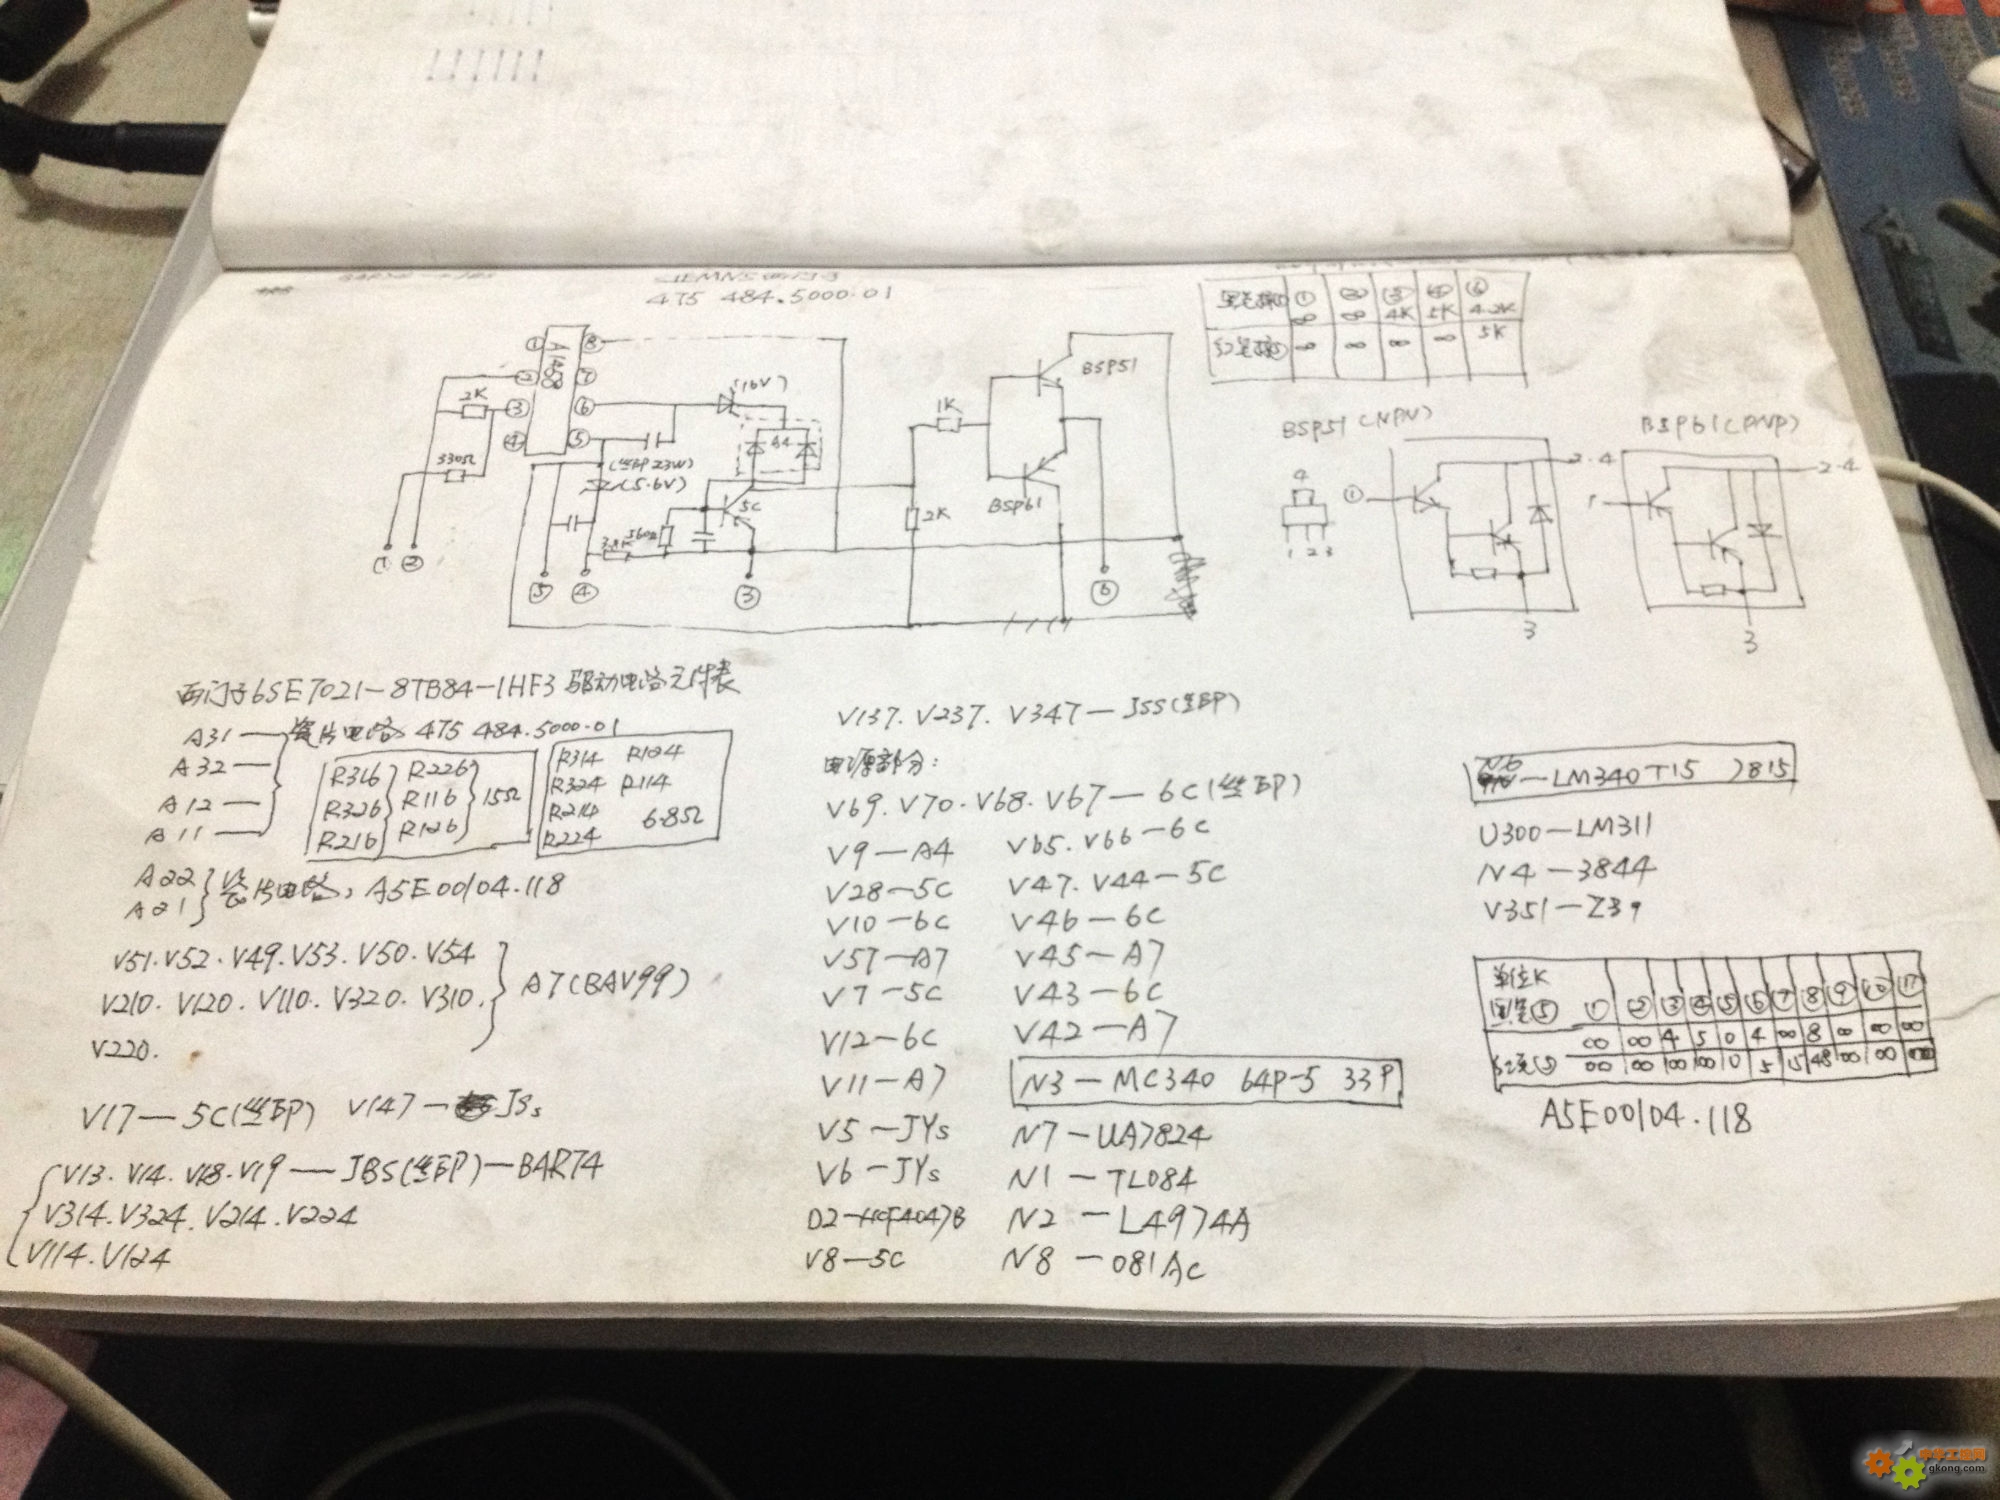 475 484.5000.01
① ② ③ ④ ⑥
∞ ∞ 4K 5K 4.2K
∞ ∞ ∞ ∞ 5K
① A1408 ⑧
② ⑦
③ ⑥
④ ⑤
2K
330Ω
(16V)
A4
(丝印 23W)
(5.6V)
5C
560Ω
1K
2K
BSP51
BSP61
① ② ⑤ ④ ③ ⑥
BSP51 (NPN)
4
1 2 3
① 2.4
3
BSP61 (PNP)
1 2.4
3
西门子6SE7021-8TB84-1HF3 驱动电路元件表
A31 — 瓷片电路 475 484.5000.01
A32 —
A12 —
A11 —
R316 R226
R326 R116 15Ω
R216 R126
R314 R124
R324 R114
R214 6.8Ω
R224
A22
A21 瓷片电路, A5E00104.118
V51.V52.V49.V53.V50.V54
V210.V120.V110.V320.V310. A7(BAV99)
V220.
V17— 5C(丝印) V147— JSs
V13.V14.V18.V19— JBS(丝印)—BAR74
V314.V324.V214.V224
V114.V124
V137.V237.V347— JSS(丝印)
电源部分:
V69.V70.V68.V67— 6C(丝印)
V9—A4 V65.V66—6C
V28—5C V47.V44—5C
V10—6C V46—6C
V57—A7 V45—A7
V7—5C V43—6C
V12—6C V42—A7
V11—A7 N3—MC340 64P-5 33P
V5—JYs N7—UA7824
V6—JYs N1—TL084
D2—HCF4047B N2—L4974A
V8—5C N8—081AC
N6—LM340T15 7815
U300—LM311
N4—3844
V351—Z39
单位K
① ② ③ ④ ⑤ ⑥ ⑦ ⑧ ⑨ ⑩ ⑪
∞ ∞ 4 5 0 4 ∞ 8 ∞ ∞ ∞
∞ ∞ ∞ ∞ 0 5 15 48 ∞ ∞ ∞
A5E00104.118
gkong.com